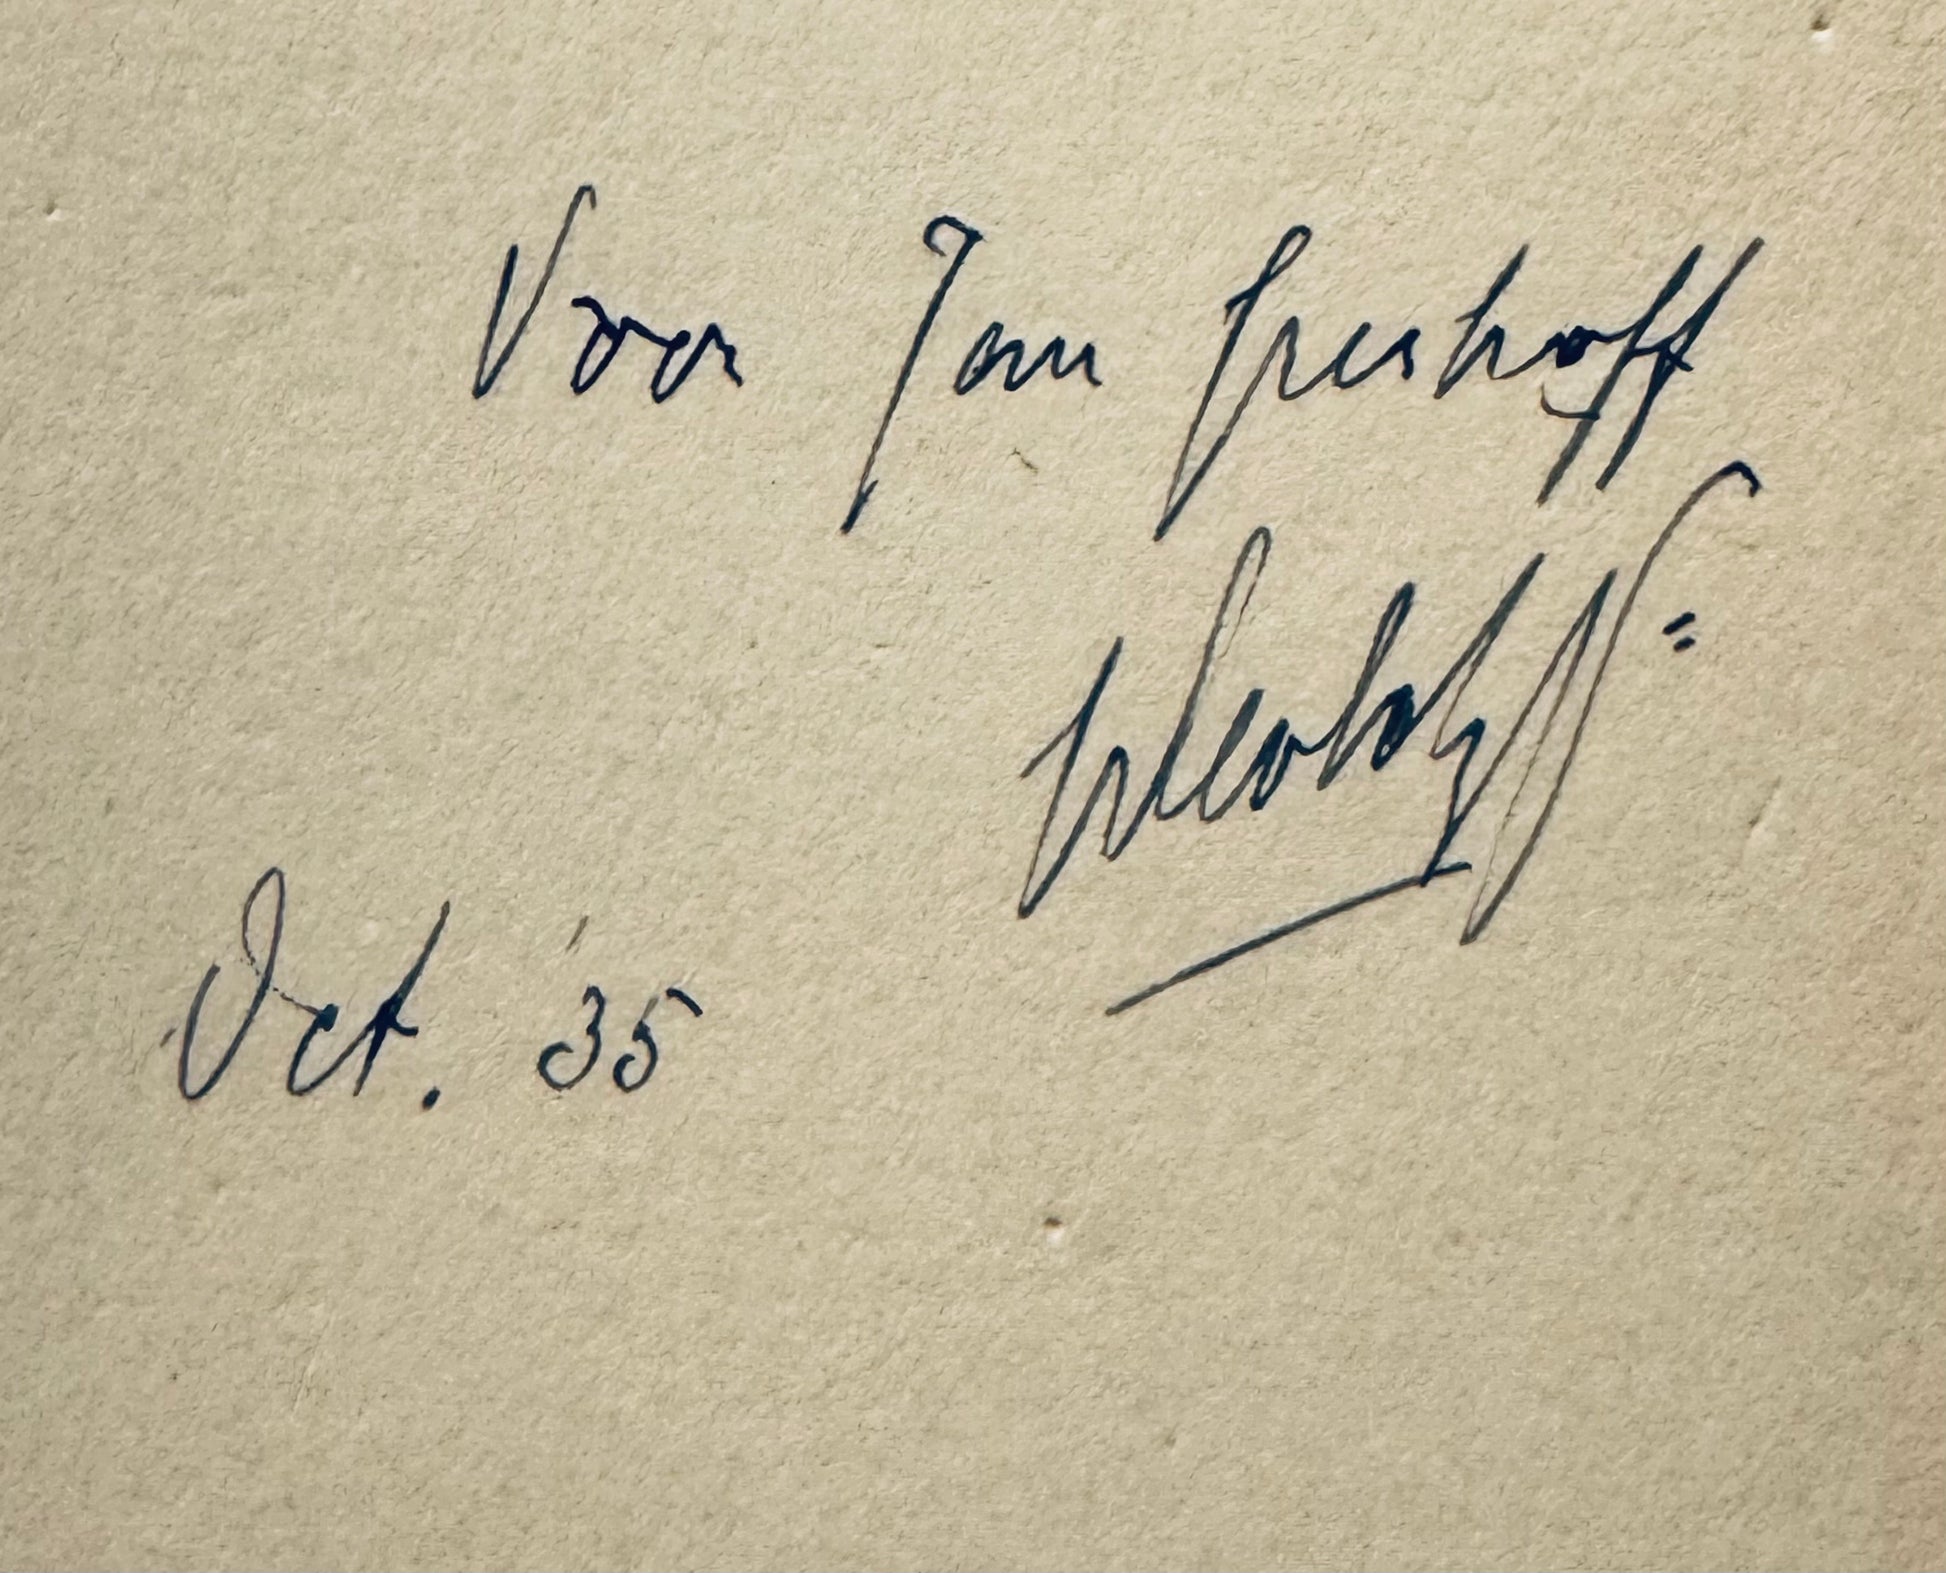 Voor Jan Greshoff
Oct. '35